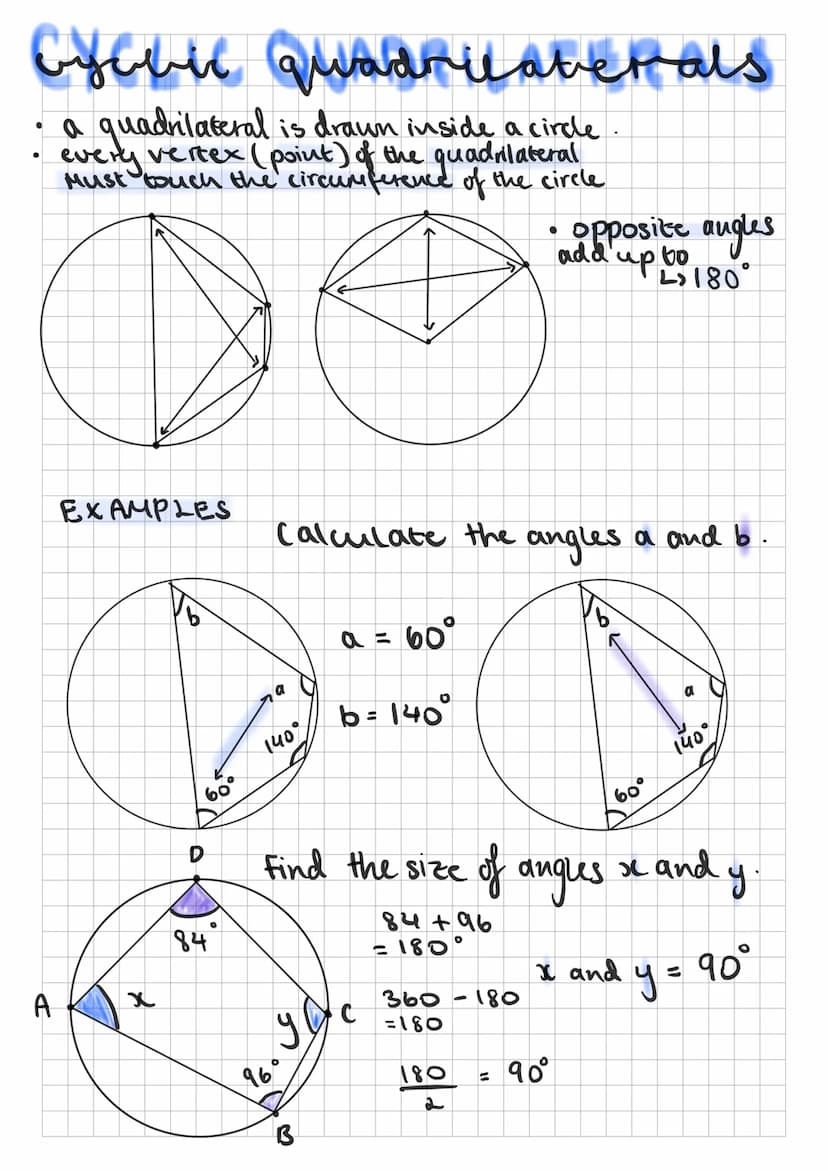 cyclic quadrilaterals
• a quadrilateral is drawn inside a circle.
• every vertex (point) of the quadrilateral
must touch the circumference of the circle
• opposite angles
add up to
↳ 180°
EXAMPLES
Calculate the angles a and b.
b
a = 60°
a
b = 140°
140°
60°
b
a
140°
60°
D
Find the size of angles x and y.
84°
84 + 96
= 180°
x and y = 90°
A
x
y
C
360 - 180
=180
96°
180/2 = 90°
B